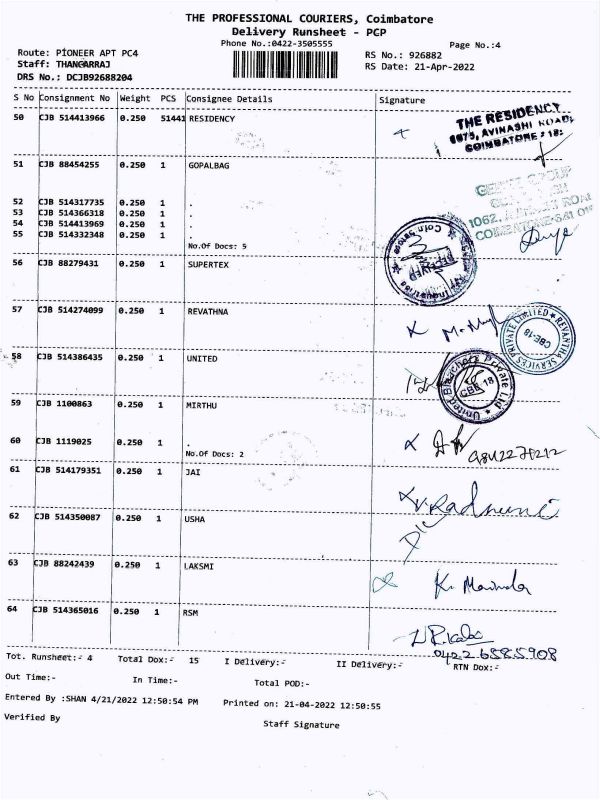 THE PROFESSIONAL COURIERS, Coimbatore
Delivery Runsheet - PCP
Phone No.:0422-3505555
Page No.:4
Route: PIONEER APT PC4
Staff: THANGARRAJ
DRS No.: DCJB92688204
RS No.: 926882
RS Date: 21-Apr-2022
S No Consignment No Weight PCS Consignee Details Signature
50 CJB 514413966 0.250 51441 RESIDENCY
THE RESIDENCY
1075, AVINASHI ROAD,
COIMBATORE : 18:
51 CJB 88454255 0.250 1 GOPALBAG
52 CJB 514317735 0.250 1 .
53 CJB 514366318 0.250 1 .
54 CJB 514413969 0.250 1 .
55 CJB 514332348 0.250 1 .
No.Of Docs: 5
GROUP
1062,
COIMBATORE-641 01
56 CJB 88279431 0.250 1 SUPERTEX
RECEIVED
57 CJB 514274099 0.250 1 REVATHNA
REVANTHA SERVICES PRIVATE LIMITED
CBE-18
58 CJB 514386435 0.250 1 UNITED
United Bleachers Private Ltd
CBE 18
59 CJB 1100863 0.250 1 MIRTHU
60 CJB 1119025 0.250 1 .
No.Of Docs: 2
61 CJB 514179351 0.250 1 JAI
62 CJB 514350087 0.250 1 USHA
63 CJB 88242439 0.250 1 LAKSMI
64 CJB 514365016 0.250 1 RSM
0422 6585908
Tot. Runsheet:- 4 Total Dox:- 15 I Delivery:- II Delivery:- RTN Dox:-
Out Time:- In Time:- Total POD:-
Entered By :SHAN 4/21/2022 12:50:54 PM Printed on: 21-04-2022 12:50:55
Verified By Staff Signature